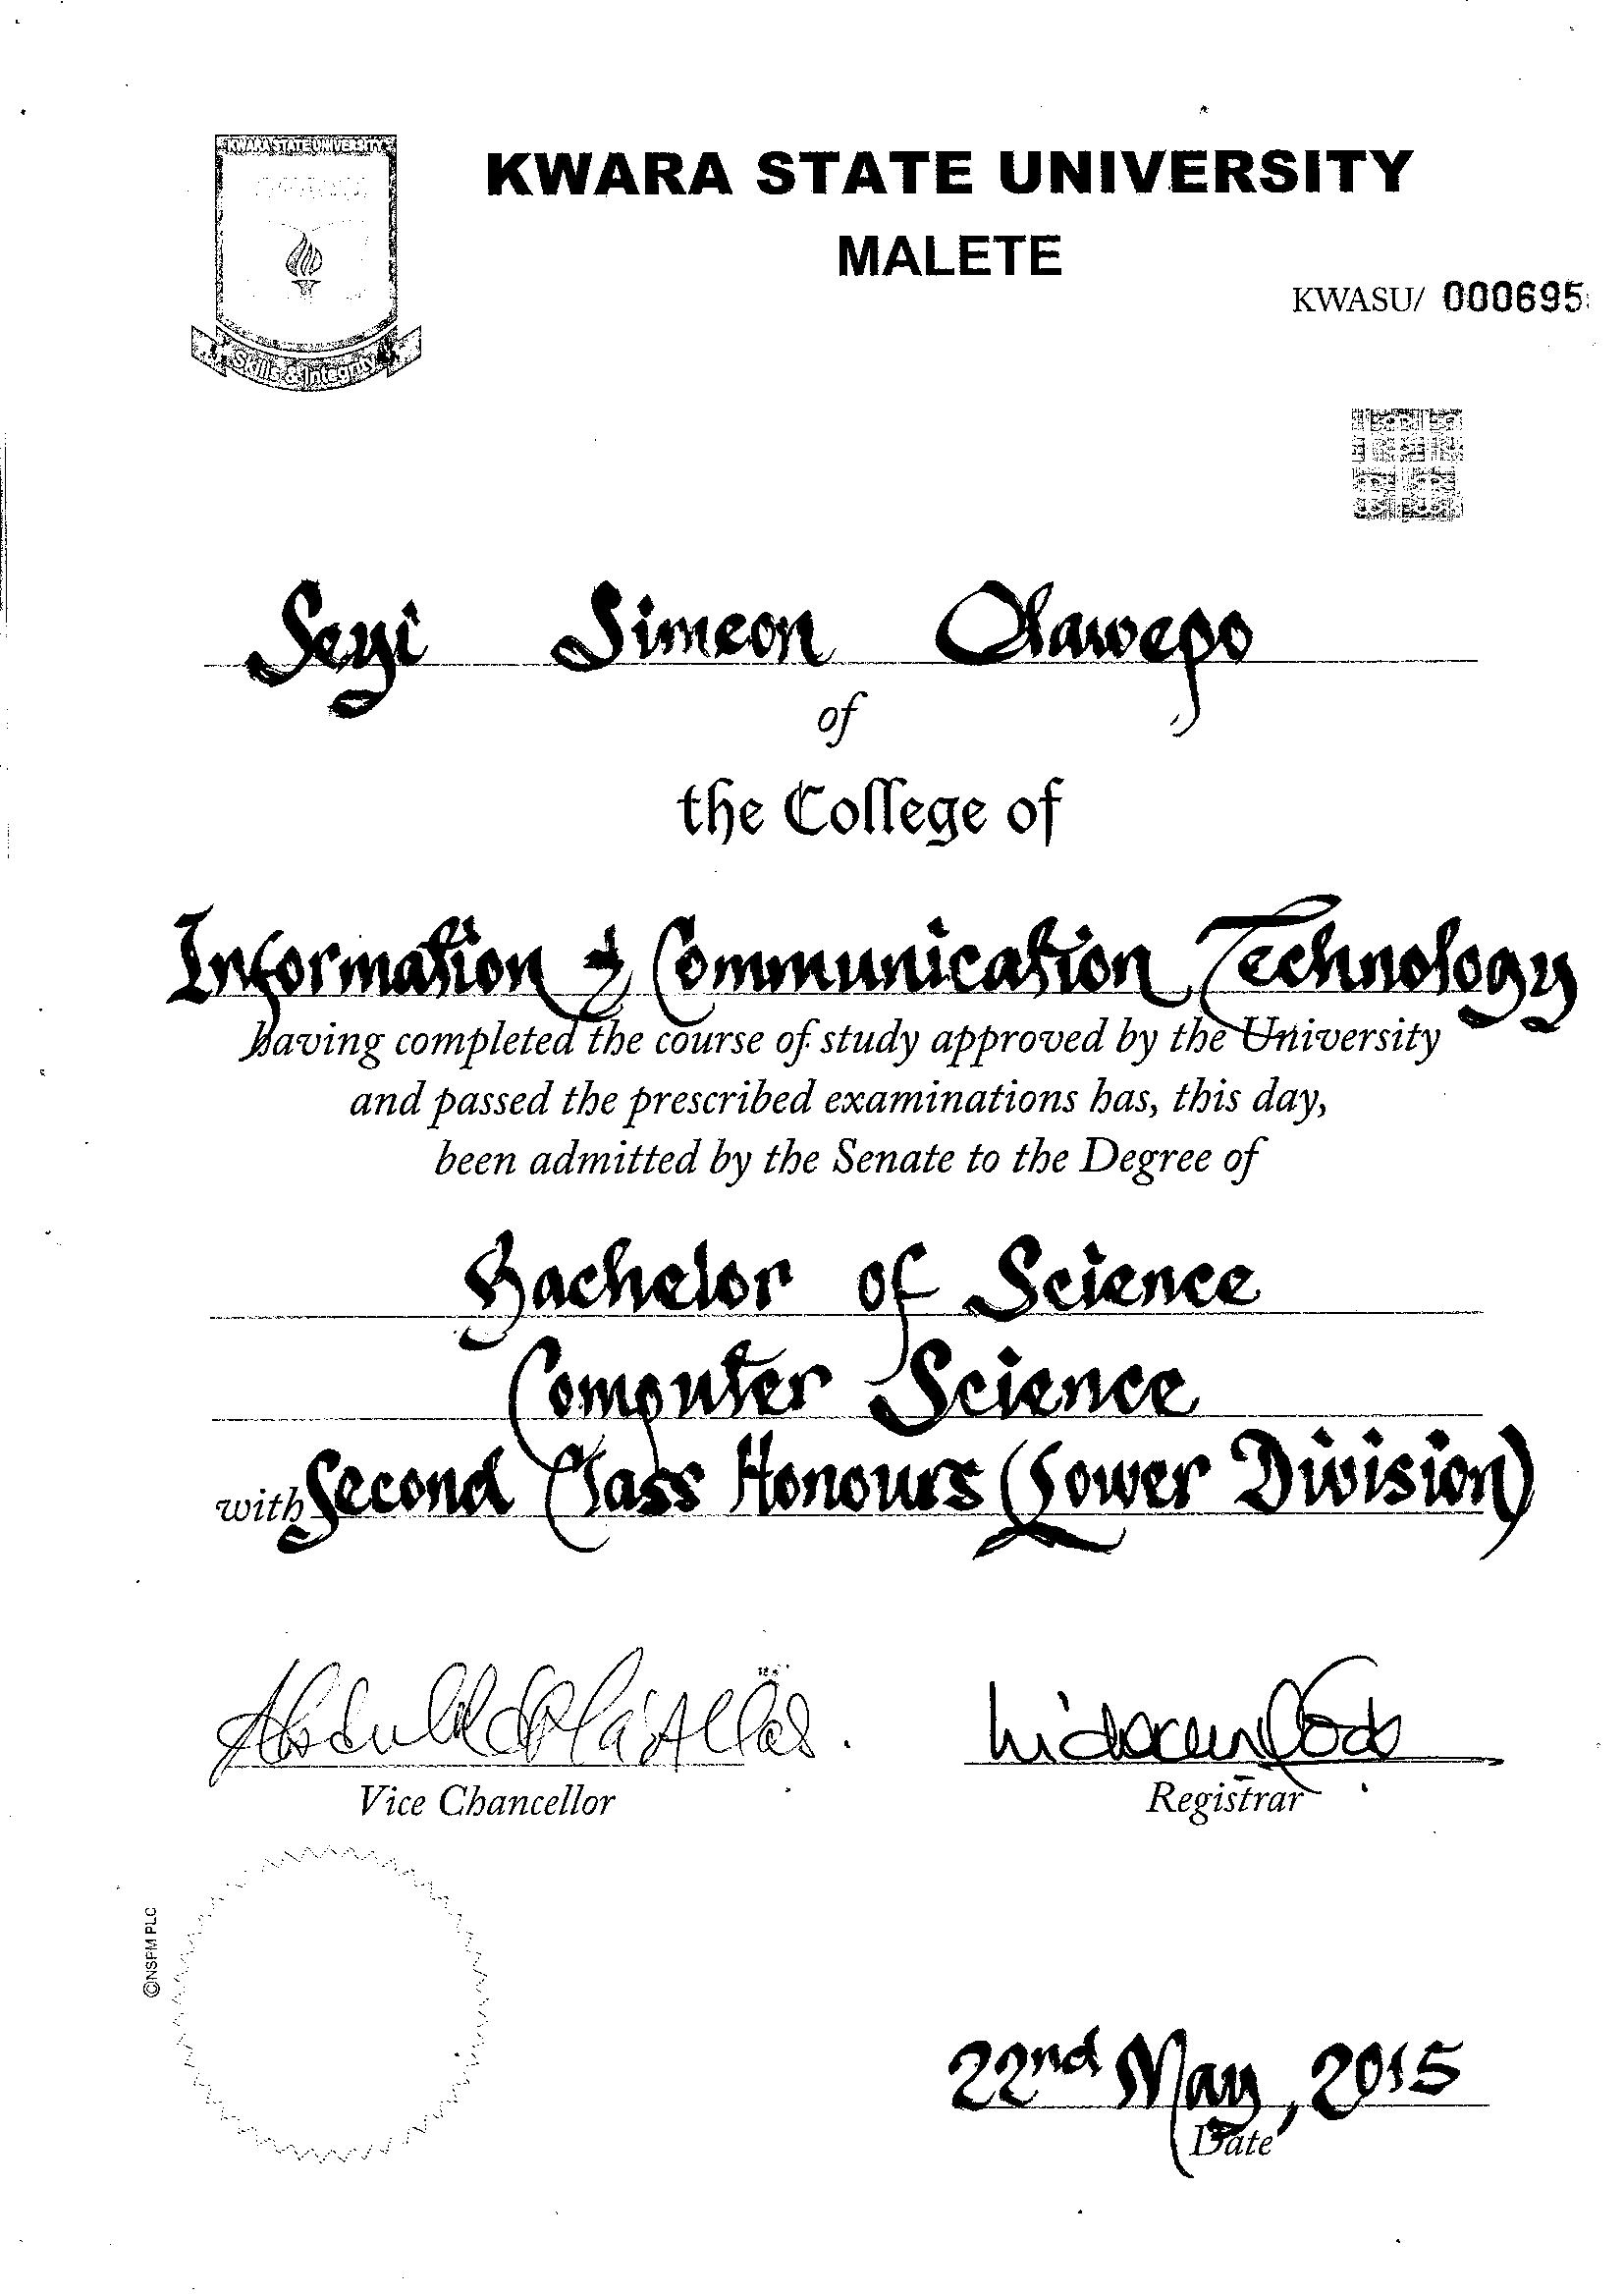 KWARA STATE UNIVERSITY
KWARA STATE UNIVERSITY
MALETE
KWASU/ 000695
Skills & Integrity
Seyi Simeon Olawepo
of
the College of
Information & Communication Technology
having completed the course of study approved by the University
and passed the prescribed examinations has, this day,
been admitted by the Senate to the Degree of
Bachelor of Science
Computer Science
with Second Class Honours (Lower Division)
Vice Chancellor
Registrar
©NSPM PLC
22nd May, 2015
Date